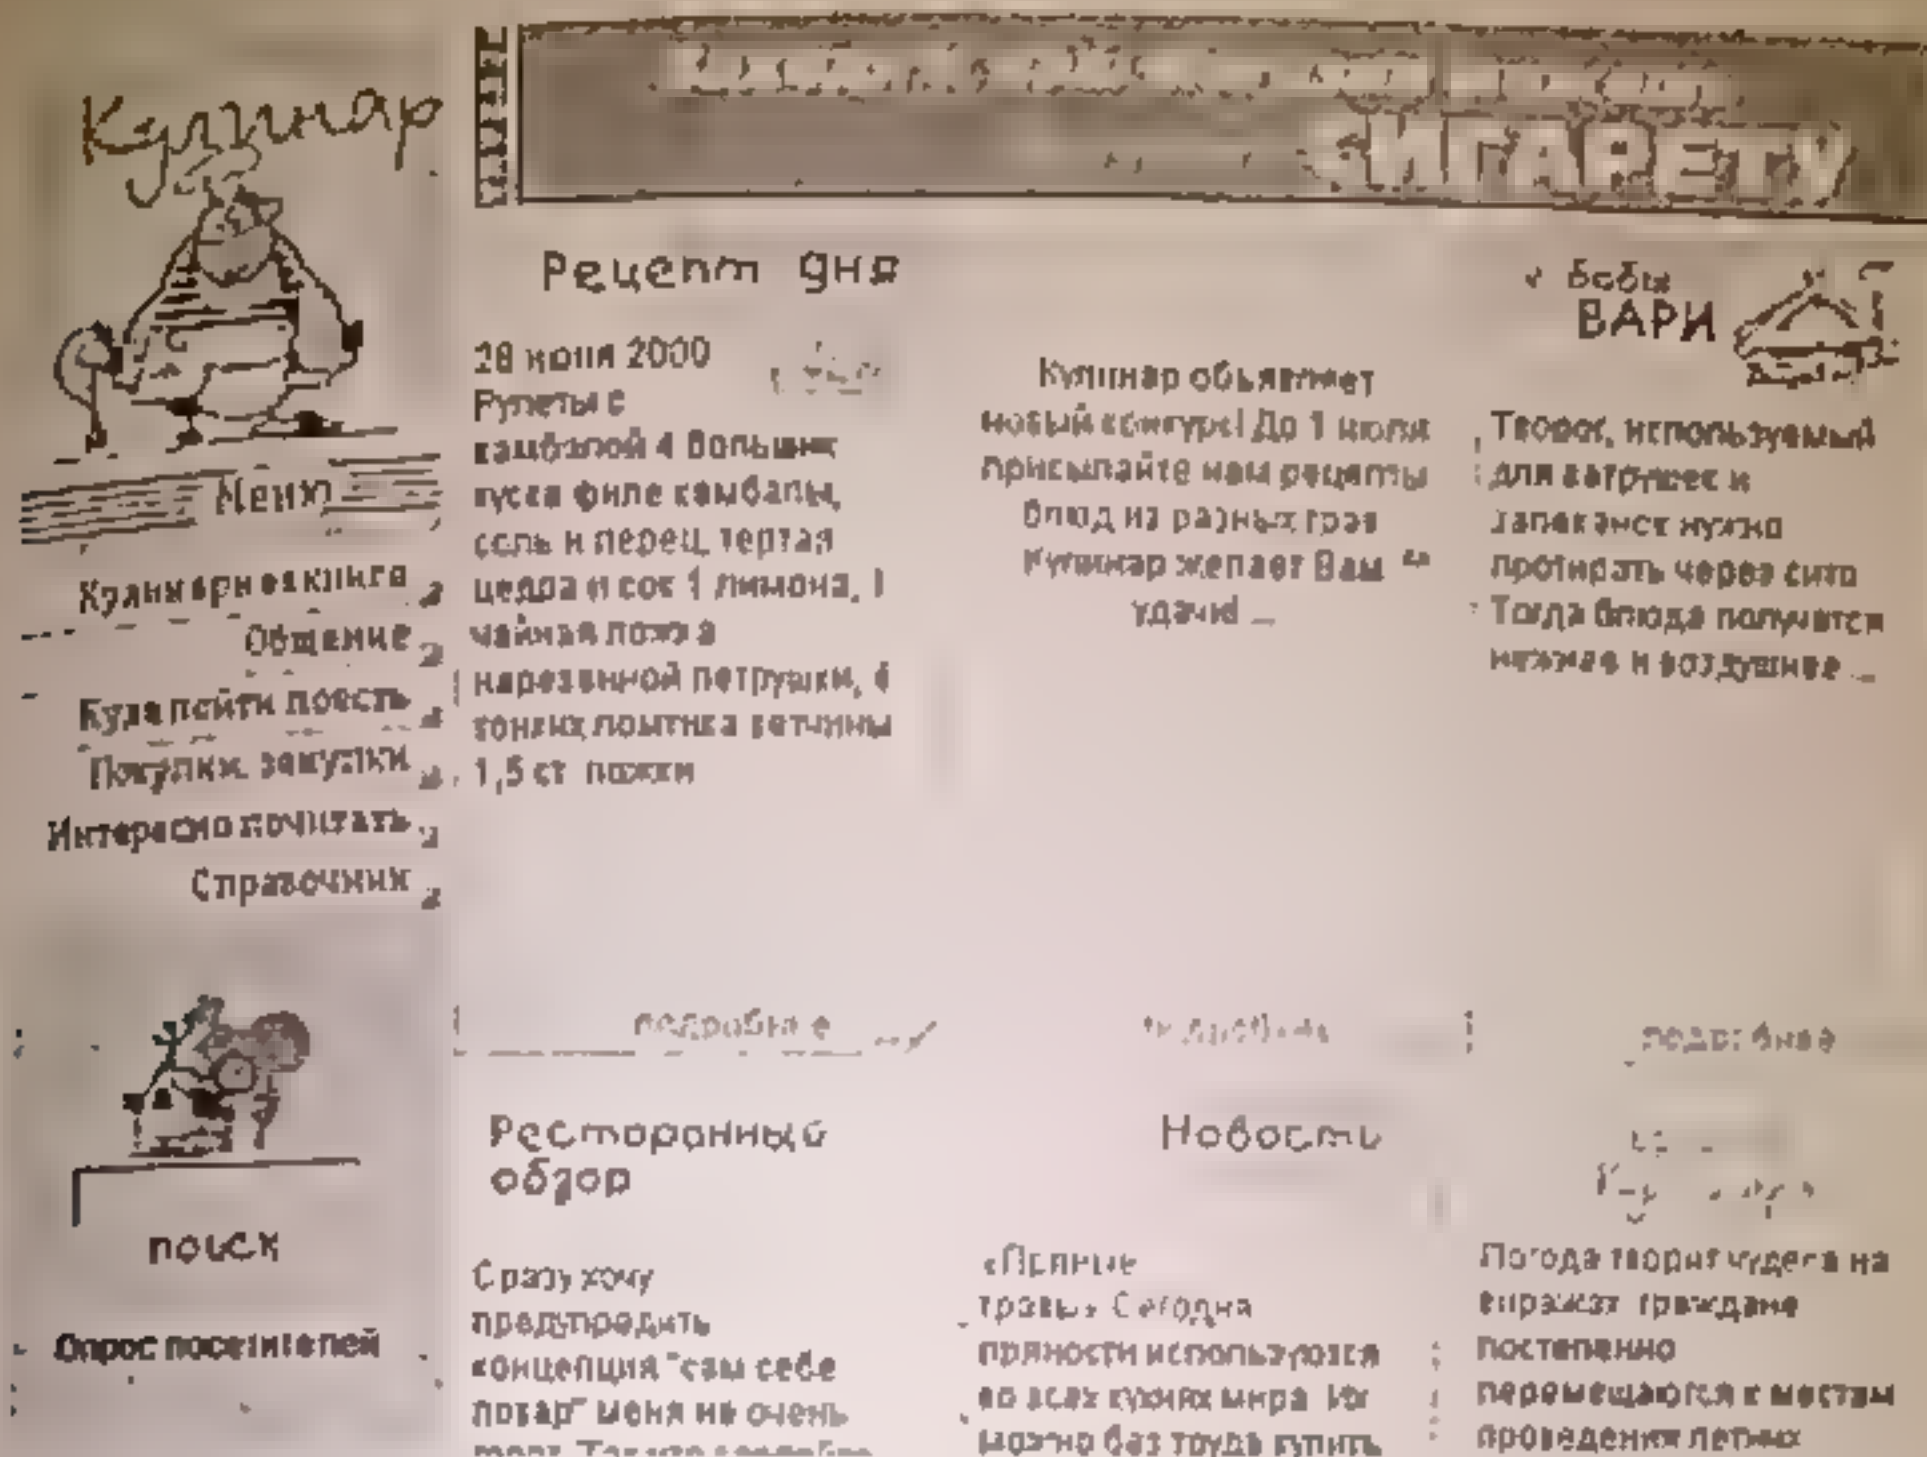 Кулинар
СИГАРЕТУ
Меню
Кулинарная книга
Общение
Куда пойти поесть
Покупки, закупки
Интересно почитать
Справочник
поиск
Опрос посетителей
Рецепт дня
28 июня 2000
Рулеты с
камбалой 4 больших
куска филе камбалы,
соль и перец, тертая
цедра и сок 1 лимона, 1
чайная ложка
нарезанной петрушки,
тонких ломтика ветчины
1,5 ст ложки
подробнее
Кулинар объявляет
новый конкурс! До 1 июля
присылайте нам рецепты
блюд из разных трав
Кулинар желает Вам
удачи! ...
подробнее
ВАРИ
Творог, используемый
для ватрушек и
запеканок нужно
протирать через сито
Тогда блюда получатся
нежнее и воздушнее ...
подробнее
Ресторанный
обзор
Сразу хочу
предупредить
концепция "сам себе
повар" меня не очень
Новости
«Пряные
травы» Сегодня
пряности используются
во всех кухнях мира Их
можно без труда купить
Погода творит чудеса на
виражах граждане
постепенно
перемещаются к местам
проведения летних